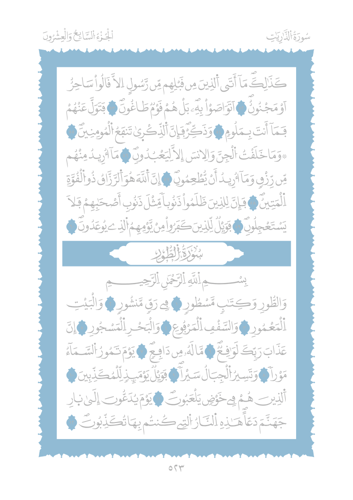 سُورَةُ الذَّارِيَاتِ
الْجُزْءُ السَّابِعُ وَالْعِشْرُونَ
كَذَٰلِكَ مَآ أَتَى ٱلذِينَ مِن قَبْلِهِم مِّن رَّسُولٍ اِلَّا قَالُوا۟ سَاحِرٌ
اَوْ مَجْنُونٌ اَتَوَاصَوْا۟ بِهِۦ بَلْ هُمْ قَوْمٌ طَاغُونَ فَتَوَلَّ عَنْهُمْ
فَمَآ أَنتَ بِمَلُومٍ وَذَكِّرْ فَإِنَّ ٱلذِّكْرَىٰ تَنفَعُ ٱلْمُومِنِينَ
وَمَا خَلَقْتُ ٱلْجِنَّ وَالِانسَ إِلَّا لِيَعْبُدُونِ مَآ أُرِيدُ مِنْهُم
مِّن رِّزْقٍ وَمَآ أُرِيدُ أَنْ يُّطْعِمُونِ إِنَّ ٱللَّهَ هُوَ ٱلرَّزَّاقُ ذُو ٱلْقُوَّةِ
ٱلْمَتِينُ فَإِنَّ لِلذِينَ ظَلَمُوا۟ ذَنُوباً مِّثْلَ ذَنُوبِ أَصْحَٰبِهِمْ فَلَا
يَسْتَعْجِلُونِ فَوَيْلٌ لِّلذِينَ كَفَرُوا۟ مِنْ يَّوْمِهِمُ ٱلذِے يُوعَدُونَ
سُورَةُ الطُّورِ
بِسْمِ ٱللَّهِ ٱلرَّحْمَٰنِ ٱلرَّحِيمِ
وَالطُّورِ وَكِتَٰبٍ مَّسْطُورٍ فِے رَقٍّ مَّنشُورٍ وَالْبَيْتِ
ٱلْمَعْمُورِ وَالسَّقْفِ ٱلْمَرْفُوعِ وَالْبَحْرِ ٱلْمَسْجُورِ إِنَّ
عَذَابَ رَبِّكَ لَوَٰقِعٌ مَّا لَهُۥ مِن دَافِعٍ يَوْمَ تَمُورُ ٱلسَّمَآءُ
مَوْراً وَتَسِيرُ ٱلْجِبَالُ سَيْراً فَوَيْلٌ يَوْمَئِذٍ لِّلْمُكَذِّبِينَ
ٱلذِينَ هُمْ فِے خَوْضٍ يَلْعَبُونَ يَوْمَ يُدَعُّونَ إِلَىٰ نَارِ
جَهَنَّمَ دَعّاً هَٰذِهِ ٱلنَّارُ ٱلتِے كُنتُم بِهَا تُكَذِّبُونَ
٥٢٣